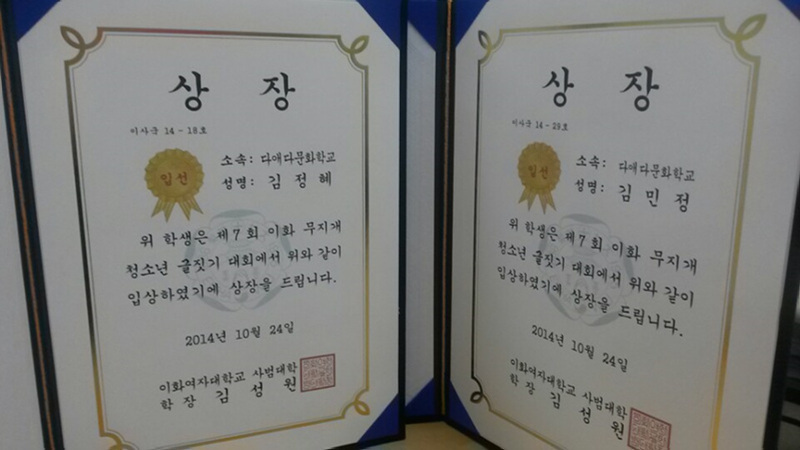 상 장
이사금 14-18호
입선
소속: 다애다문화학교
성명: 김 정 혜
위 학생은 제7회 이화 무지개
청소년 글짓기 대회에서 위와 같이
입상하였기에 상장을 드립니다.
2014년 10월 24일
이화여자대학교 사범대학
학 장 김 성 원
상 장
이사금 14-29호
입선
소속: 다애다문화학교
성명: 김 민 정
위 학생은 제7회 이화 무지개
청소년 글짓기 대회에서 위와 같이
입상하였기에 상장을 드립니다.
2014년 10월 24일
이화여자대학교 사범대학
학 장 김 성 원